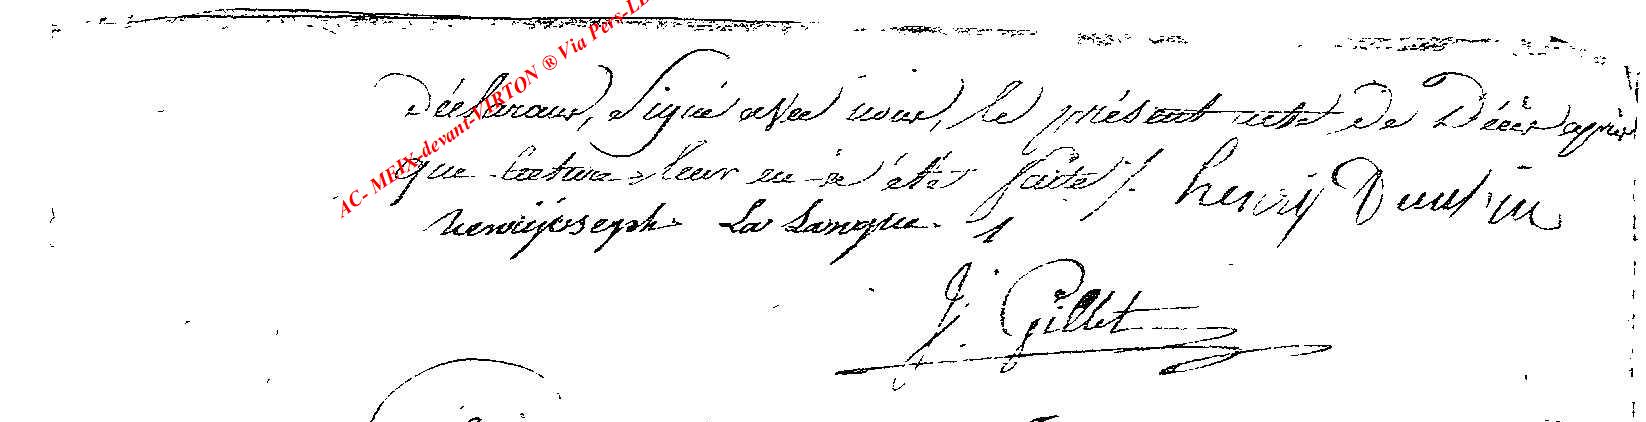 AC- MEIX-devant-VIRTON ® Via Pers-LE
Déclarans, signé avec nous, le présent acte de Décès après
que Lecture leur en a été faite /. henry
henrijoseph La Langue
J. Gillet